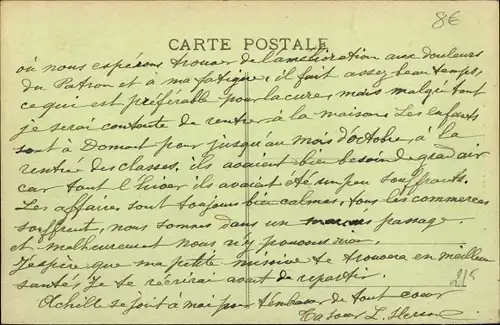 8€
CARTE POSTALE
où nous espérons trouver de l'amélioration aux douleurs
du Patron et à ma fatigue, il fait assez beau temps,
ce qui est préférable pour la cure, mais malgré tout
je serai contente de rentrer à la maison. Les enfants
sont à Domont pour jusqu'au mois d'octobre, à la
rentrée des classes. ils avaient bien besoin de grand air
car tout l'hiver ils avaient été un peu souffrants.
Les affaires sont toujours bien calmes, tous les commerces
souffrent, nous sommes dans un mauvais passage.
et malheureusement nous n'y pouvons rien.
J'espère que ma petite missive te trouvera en meilleure
santé, Je te récrirai avant de repartir.
Achille se joint à moi pour t'embrasser de tout coeur
Ta soeur L.